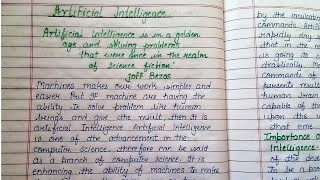 Artificial Intelligence
Artificial Intelligence is in a golden
age and solving problems
that were once in the realm
of Science fiction
Jeff Bezos
Machines makes our work simpler and
easier. But If machine are having the
ability to solve problem like human
beings and give the result, then It is
artificial Intelligence Artificial Intelligence
is one of the advancement in the
computer science. therefore can be said
as a branch of computer science. It is
enhancing the ability of machines To make
by the
commands. Artif
rapidly day
that in the n
is going to
drastically. M
commands of
presents resul
human brain
capable of the
upon what
that time
Importance
Intelligence
of the de
In to be